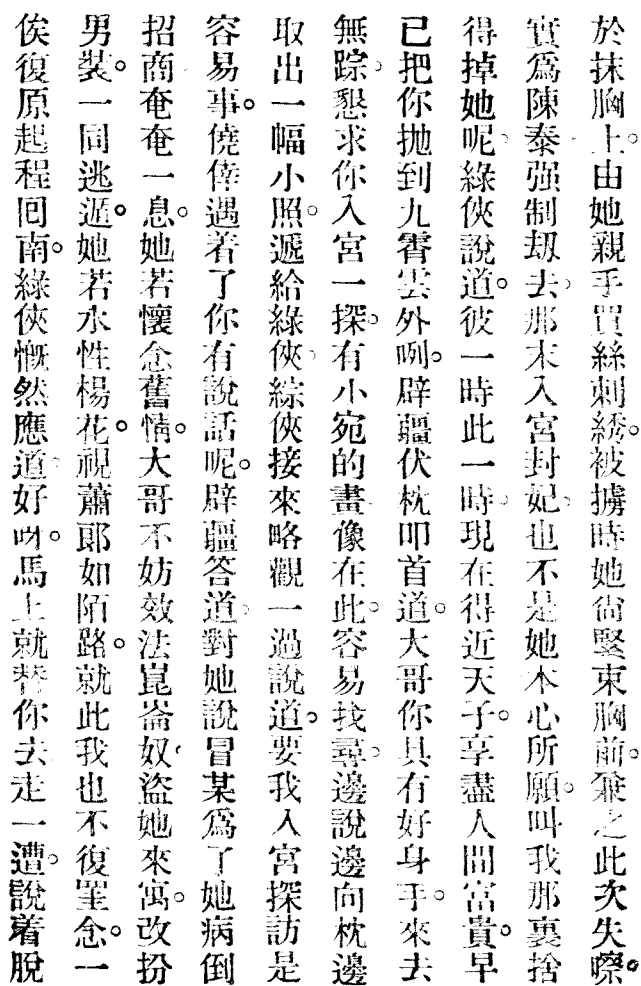 於抹胸上。由她親手買絲刺綉。被擄時她尙緊束胸前。兼之此次失嚓。
實爲陳泰强制刼去。那末入宮封妃。也不是她本心所願。叫我那裏捨
得掉她呢。綠俠說道。彼一時此一時。現在得近天子。享盡人間富貴。早
已把你抛到九霄雲外咧。辟疆伏枕叩首道。大哥你具有好身手。來去
無踪。懇求你入宮一探。有小宛的畫像在此。容易找尋。邊說邊向枕邊
取出一幅小照。遞給綠俠。綜俠接來略觀一過說道。要我入宮探訪是
容易事。僥倖遇着了你有說話呢。辟疆答道。對她說冒某爲了她病倒
招商奄奄一息。她若懷念舊情。大哥不妨效法崑崙奴。盜她來寓。改扮
男裝。一同逃遁。她若水性楊花。視蕭郞如陌路。就此我也不復罣念。一
俟復原起程回南。綠俠慨然應道。好呀。馬上就替你去走一遭。說着脫